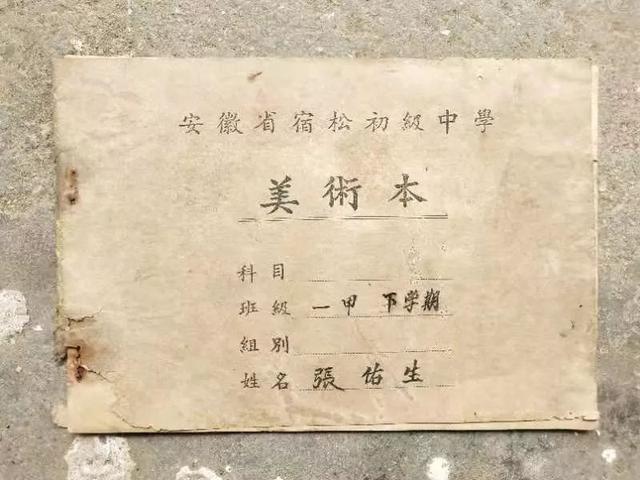 安徽省宿松初級中學
美術本
科目
班級 一甲 下学期
組別
姓名 張佑生